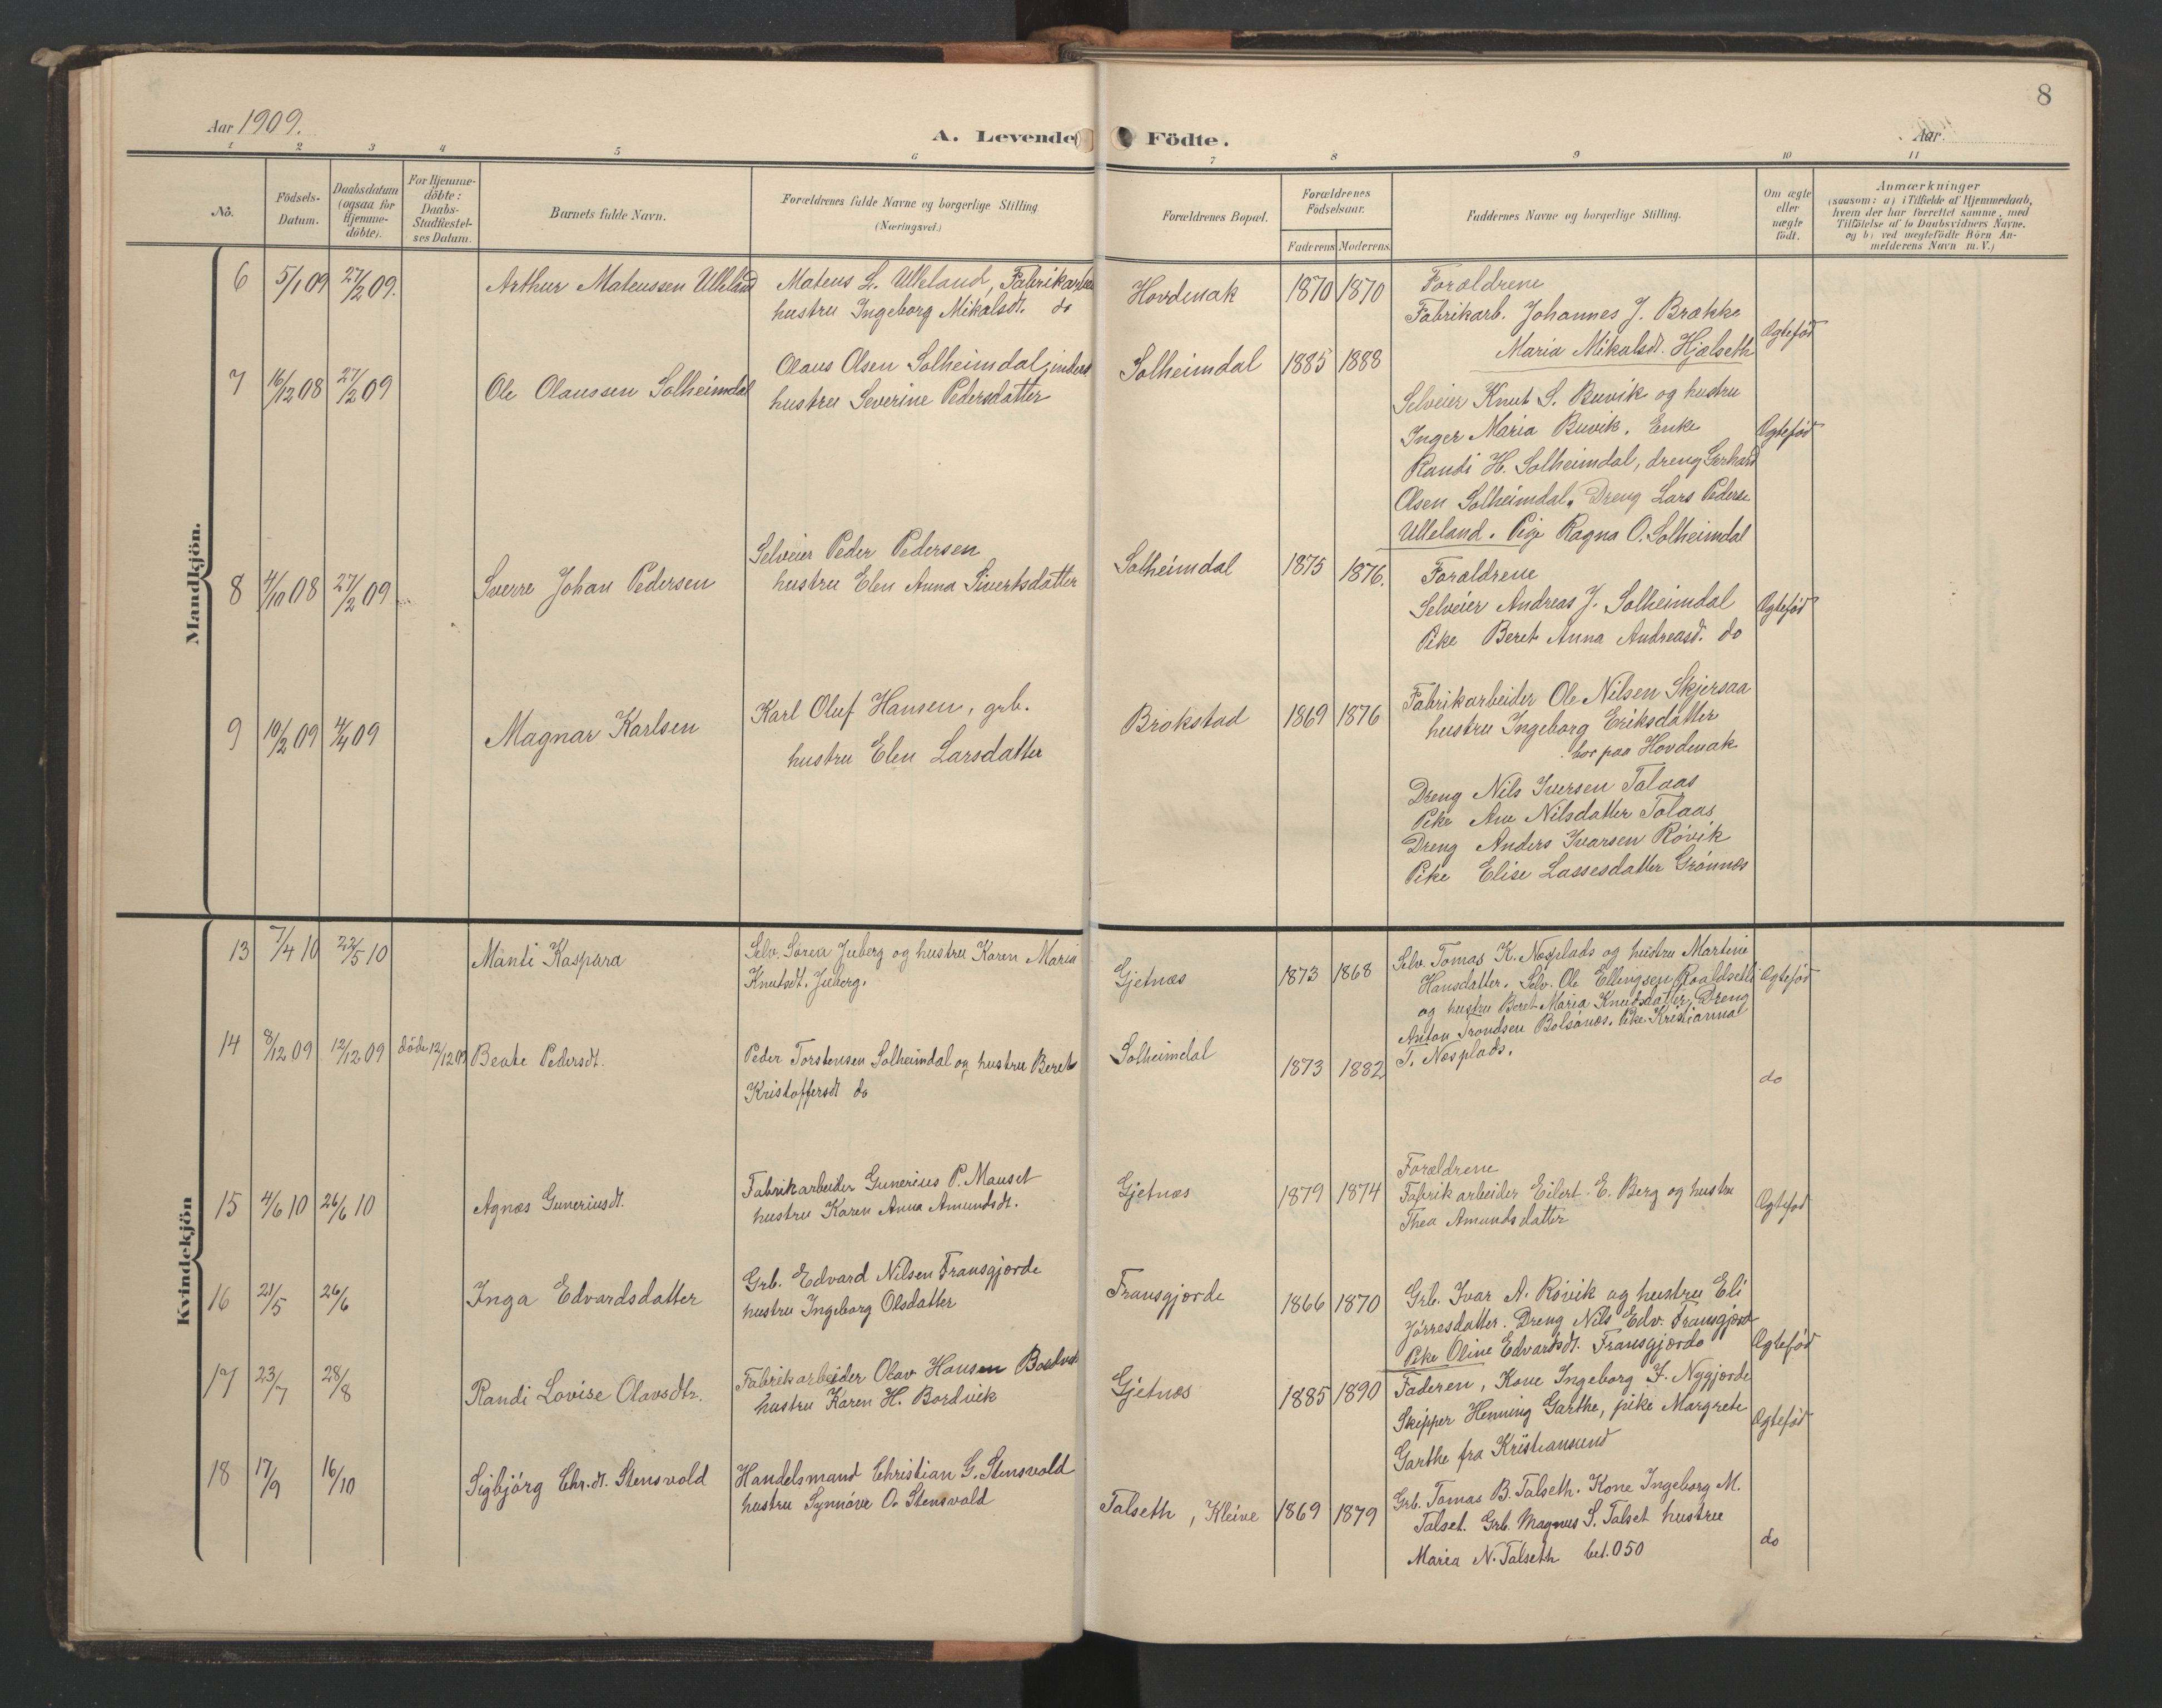 8
Aar 1909.
A. Levende Födte.
Aar
1 2 3 4 5 6 7 8 9 10 11
No.
Födsels-
Datum.
Daabsdatum
(ogsaa for
Hjemme-
döbte).
For Hjemme-
döbte:
Daabs-
Stadfæstel-
ses Datum.
Barnets fulde Navn.
Forældrenes fulde Navne og borgerlige Stilling
(Næringsvei.)
Forældrenes Bopæl.
Forældrenes
Födselsaar.
Faderens Moderens.
Faddernes Navne og borgerlige Stilling.
Om ægte
eller
uægte
födt.
Anmærkninger
(saasom: a) i Tilfælde af Hjemmedaab,
hvem der har forrettet samme, med
Tilföielse af to Daabsvidners Navne.
og b) ved uægtefödte Börn An-
melderens Navn m.V.)
Mandkjön.
6 5/1 09 27/2 09. Arthur Mateussen Ulleland
Mateus L. Ulleland, Fabrikarbei
hustru Ingeborg Mikalsdt. do
Hovdenak 1870 1870
Forældrene
Fabrikarb. Johannes J. Brække
Maria Mikalsdt. Hjælseth
Ægtefød
7 16/12 08 27/2 09 Ole Olaussen Solheimdal
Olaus Olsen Solheimdal, inderst
hustru Severine Pedersdatter
Solheimdal 1885 1888
Selveier Knut S. Buvik og hustru
Inger Maria Buvik. Enke
Randi H. Solheimdal, dreng Gerhard
Olsen Solheimdal. Dreng Lars Peders
Ulleland. Pige Ragna O. Solheimdal
Ægtefød
8 4/10 08 27/2 09 Sverre Johan Pedersen
Selveier Peder Pedersen
hustru Elen Anna Sivertsdatter
Solheimdal 1875 1876.
Forældrene
Selveier Andreas J. Solheimdal
Pike Beret Anna Andreasd. do
Ægtefød
9 10/2 09 4/4 09 Magnar Karlsen
Karl Oluf Hansen, grb.
hustru Elen Larsdatter
Brokstad 1869 1876
Fabrikarbeider Ole Nilsen Skjersaa
hustru Ingeborg Eriksdatter
bor paa Hovdenak
Dreng Nils Iversen Talaas
Pike Ane Nilsdatter Tolaas
Dreng Anders Ivarsen Rövik
Pike Elise Lassesdatter Grönnes
Kvindekjön
13 7/4 10 22/5 10 Manti Kaspara
Selv. Sören Juberg og hustru Karen Maria
Knutsdt. Juberg.
Gjetnæs 1873 1868
Selv. Tomas K. Næsplads og hustru Martine
Hansdatter. Selv. Ole Ellingsen Roaldseth
og hustru Beret Maria Knudsdatter, Dreng
Anton Trondsen Bolsönæs. Pike Kristianna
T. Næsplads.
Ægtefød
14 8/12 09 12/12 09 döde 12/12 09 Beate Pedersdt.
Peder Torstensen Solheimdal og hustru Beret
Kristoffersdt do
Solheimdal 1873 1882
do
15 4/6 10 26/6 10 Agnæs Guneriusdt.
Fabrikarbeider Gunerius P. Mauset
hustru Karen Anna Amundsdt.
Gjetnæs 1879 1874
Forældrene
Fabrikarbeider Eilert E. Berg og hustru
Thea Amundsdatter
Ægtefød
16 21/5 26/6 Inga Edvardsdatter
Grb. Edvard Nilsen Fransgjærde
hustru Ingeborg Olsdatter
Fransgjærde 1866 1870
Grb. Ivar A. Rövik og hustru Eli
Jörresdatter. Dreng Nils Edv. Fransgjærd
Pike Oline Edvardsdt. Fransgjærdo
Ægtefød
17 23/7 28/8 Randi Lovise Olavsdtr.
Fabrikarbeider Olav Hansen Bordvik
hustru Karen H. Bordvik
Gjetnæs 1885 1890
Faderen, Kone Ingeborg J. Nygjerde
Skipper Henning Garthe, pike Margrete
Garthe fra Kristiansund
Ægtefød
18 17/9 16/10 Sigbjörg Chr.dt. Stensvold
Handelsmand Christian G. Stensvold
hustru Synnöve O. Stensvold
Talseth, Kleive 1869 1879
Grb. Tomas B. Talseth. Kone Ingeborg M.
Talset. Grb. Magnus S. Talset hustru
Maria N. Talseth bet. 050
do